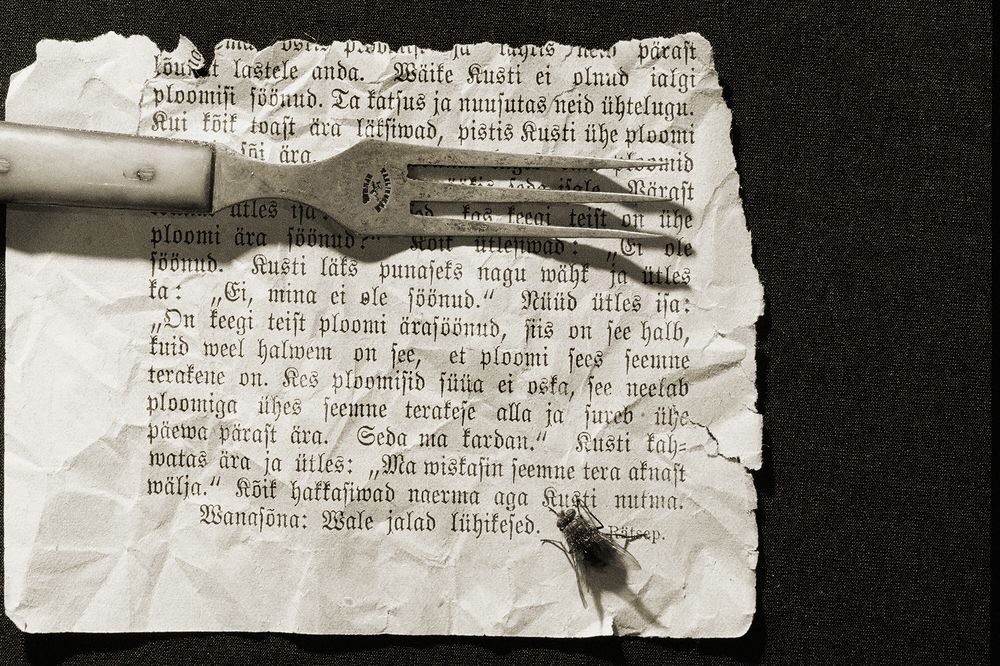 pärast
lastele anda. Wäike Kusti ei olnud ialgi
ploomisi söönud. Ta katsus ja nuusutas neid ühtelugu.
Kui kõik toast ära läksiwad, pistis Kusti ühe ploomi
sõi ära. ploomid
Pärast
ütles isa: kas keegi teist on ühe
ploomi ära söönud?" Kõik ütlesiwad: „Ei ole
söönud. Kusti läks punaseks nagu wähk ja ütles
ka: „Ei, mina ei ole söönud.“ Nüüd ütles isa:
„On keegi teist ploomi ärasöönud, siis on see halb,
kuid weel halwem on see, et ploomi sees seemne
terakene on. Kes ploomisid süüa ei oska, see neelab
ploomiga ühes seemne terakese alla ja sureb ühe
päewa pärast ära. Seda ma kardan.“ Kusti kah=
watas ära ja ütles: „Ma wiskasin seemne tera aknast
wälja.“ Kõik hakkasiwad naerma aga Kusti nutma.
Wanasõna: Wale jalad lühikesed.
Rätsep.